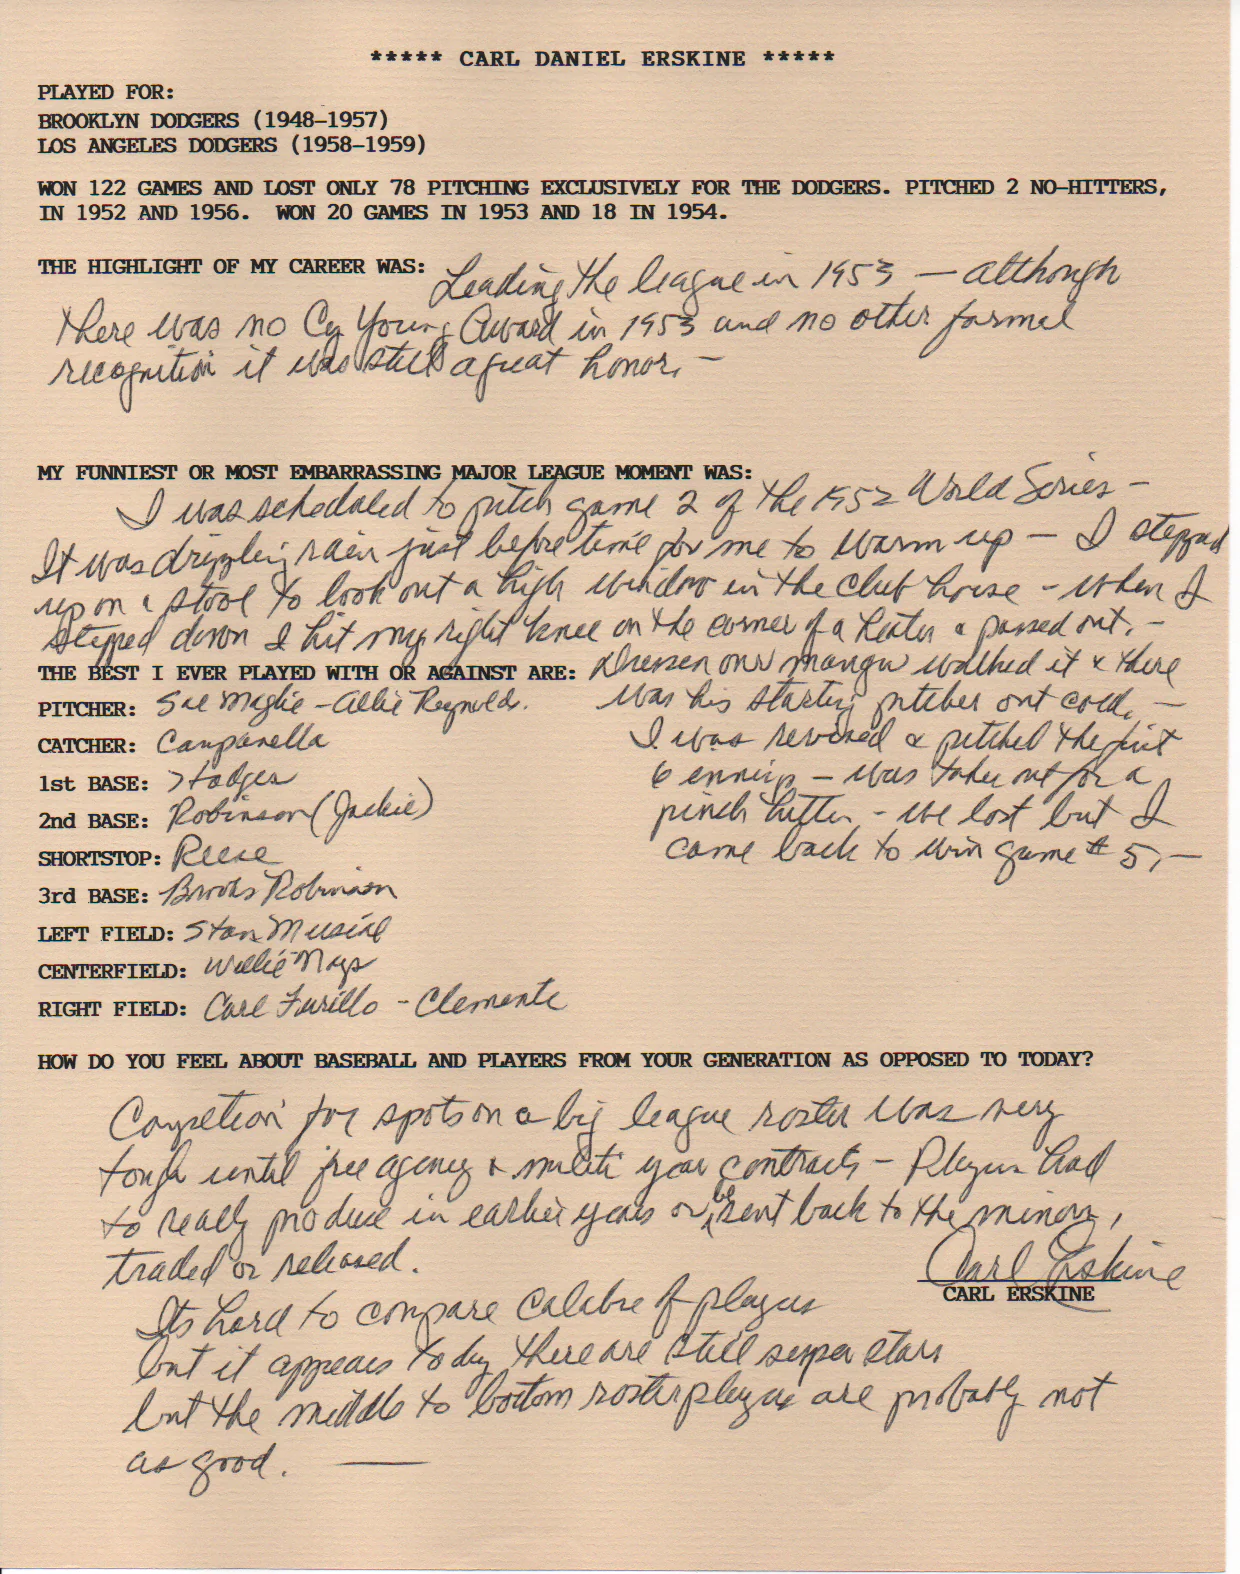 ***** CARL DANIEL ERSKINE *****
PLAYED FOR:
BROOKLYN DODGERS (1948-1957)
LOS ANGELES DODGERS (1958-1959)
WON 122 GAMES AND LOST ONLY 78 PITCHING EXCLUSIVELY FOR THE DODGERS. PITCHED 2 NO-HITTERS,
IN 1952 AND 1956. WON 20 GAMES IN 1953 AND 18 IN 1954.
THE HIGHLIGHT OF MY CAREER WAS: Leading the league in 1953 — although
there was no Cy Young Award in 1953 and no other formal
recognition it was still a great honor. —
MY FUNNIEST OR MOST EMBARRASSING MAJOR LEAGUE MOMENT WAS:
I was scheduled to pitch game 2 of the 1952 World Series —
It was drizzling rain just before time for me to warm up — I stepped
up on a stool to look out a high window in the club house - when I
stepped down I hit my right knee on the corner of a heater & passed out. —
THE BEST I EVER PLAYED WITH OR AGAINST ARE: Dressen our manger walked it & there
was his starting pitcher out cold, —
I was revived & pitched the first
6 innings — was taken out for a
pinch hitter - we lost but I
came back to win game # 5, —
PITCHER: Sal Maglie - Allie Reynolds.
CATCHER: Campanella
1st BASE: Hodges
2nd BASE: Robinson (Jackie)
SHORTSTOP: Reese
3rd BASE: Brooks Robinson
LEFT FIELD: Stan Musial
CENTERFIELD: Willie Mays
RIGHT FIELD: Carl Furillo - Clemente
HOW DO YOU FEEL ABOUT BASEBALL AND PLAYERS FROM YOUR GENERATION AS OPPOSED TO TODAY?
Competion for spots on a big league roster was very
tough until free agency & multi year contracts — Players had
to really produce in earlier years or be sent back to the minors,
traded or released.
Carl Erskine
CARL ERSKINE
Its hard to compare calabre of players
but it appears today there are still super stars
but the middle to bottom roster players are probably not
as good. —